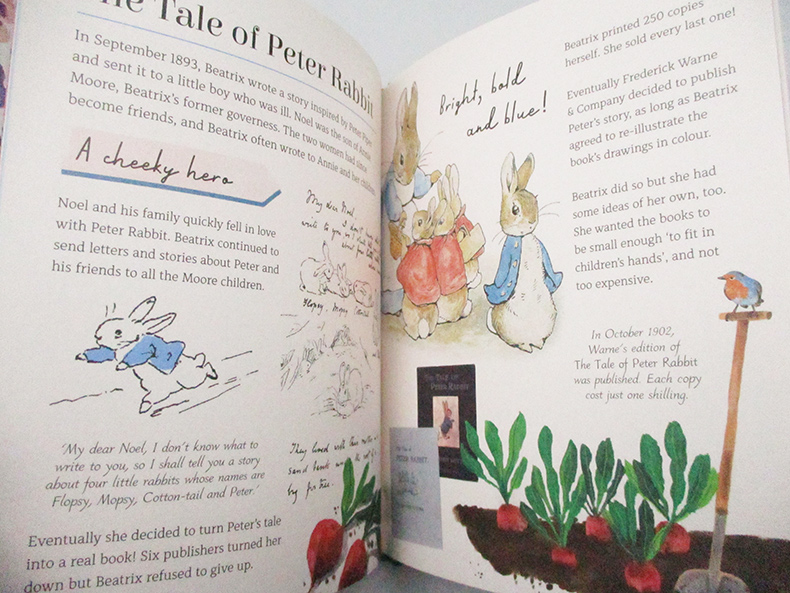 The Tale of Peter Rabbit
In September 1893, Beatrix wrote a story inspired by Peter Piper
and sent it to a little boy who was ill. Noel was the son of Annie
Moore, Beatrix's former governess. The two women had since
become friends, and Beatrix often wrote to Annie and her children.
A cheeky hero
Noel and his family quickly fell in love
with Peter Rabbit. Beatrix continued to
send letters and stories about Peter and
his friends to all the Moore children.
My dear Noel,
Flopsy, Mopsy
'My dear Noel, I don't know what to
write to you, so I shall tell you a story
about four little rabbits whose names are
Flopsy, Mopsy, Cotton-tail and Peter.'
They lived with their
sand bank
fir tree.
Eventually she decided to turn Peter's tale
into a real book! Six publishers turned her
down but Beatrix refused to give up.
Bright, bold
and blue!
The Tale of
Peter Rabbit
The Tale of
PETER RABBIT
Beatrix printed 250 copies
herself. She sold every last one!
Eventually Frederick Warne
& Company decided to publish
Peter's story, as long as Beatrix
agreed to re-illustrate the
book's drawings in colour.
Beatrix did so but she had
some ideas of her own, too.
She wanted the books to
be small enough 'to fit in
children's hands', and not
too expensive.
In October 1902,
Warne's edition of
The Tale of Peter Rabbit
was published. Each copy
cost just one shilling.